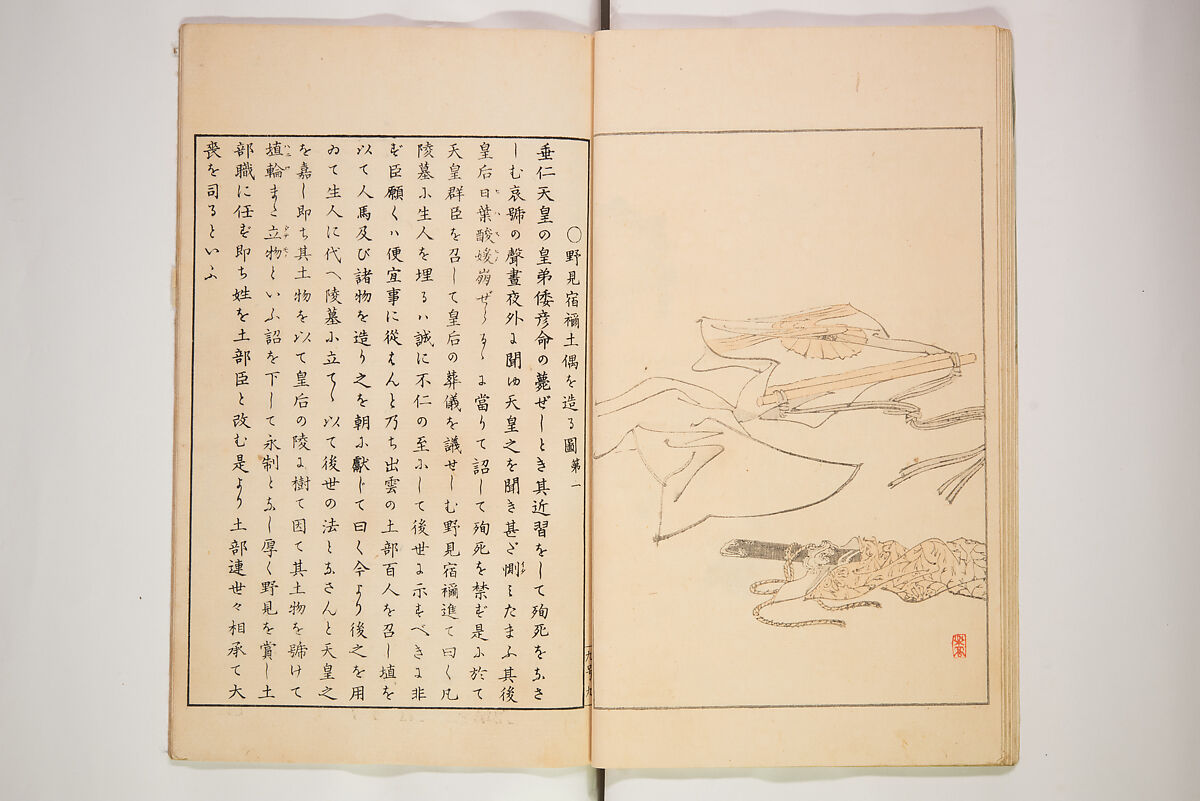 〇野見宿禰土偶を造る圖第一
垂仁天皇の皇弟倭彦命の薨ぜしとき其近習をして殉死をなさ
しむ哀號の聲晝夜外に聞ゆ天皇之を聞き甚ざ惻みたまふ其後
皇后日葉酸媛崩ぜらるゝに當りて詔して殉死を禁ず是に於て
天皇群臣を召して皇后の葬儀を議せしむ野見宿禰進て曰く凡
陵墓に生人を埋るハ誠に不仁の至にして後世に示すべきに非
ず臣願くハ便宜事に從はんと乃ち出雲の土部百人を召し埴を
以て人馬及び諸物を造り之を朝に獻じて曰く今より後之を用
ゐて生人に代へ陵墓に立てゝ以て後世の法となさんと天皇之
を嘉し即ち其土物を以て皇后の陵に樹て因て其土物を號けて
埴輪また立物といふ詔を下して永制となし厚く野見を賞し土
部職に任ず即ち姓を土部臣と改む是より土部連世々相承て大
喪を司るといふ